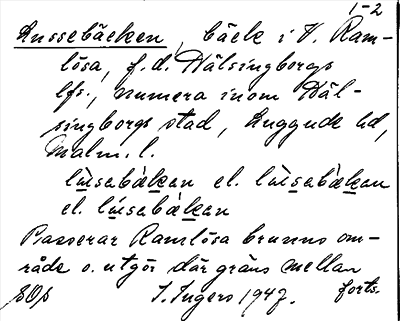 1-2
Lussebäcken, bäck i V. Ram-
lösa, f.d. Hälsingborgs
lfs., numera inom Häl-
singborgs stad, Luggude hd,
Malm. l.
lùsabàkan el. lùsabàkan
el. lúsabàkan
Passerar Ramlösa brunns om-
råde o. utgör där gräns mellan
SOp I. Ingers 1947. forts.